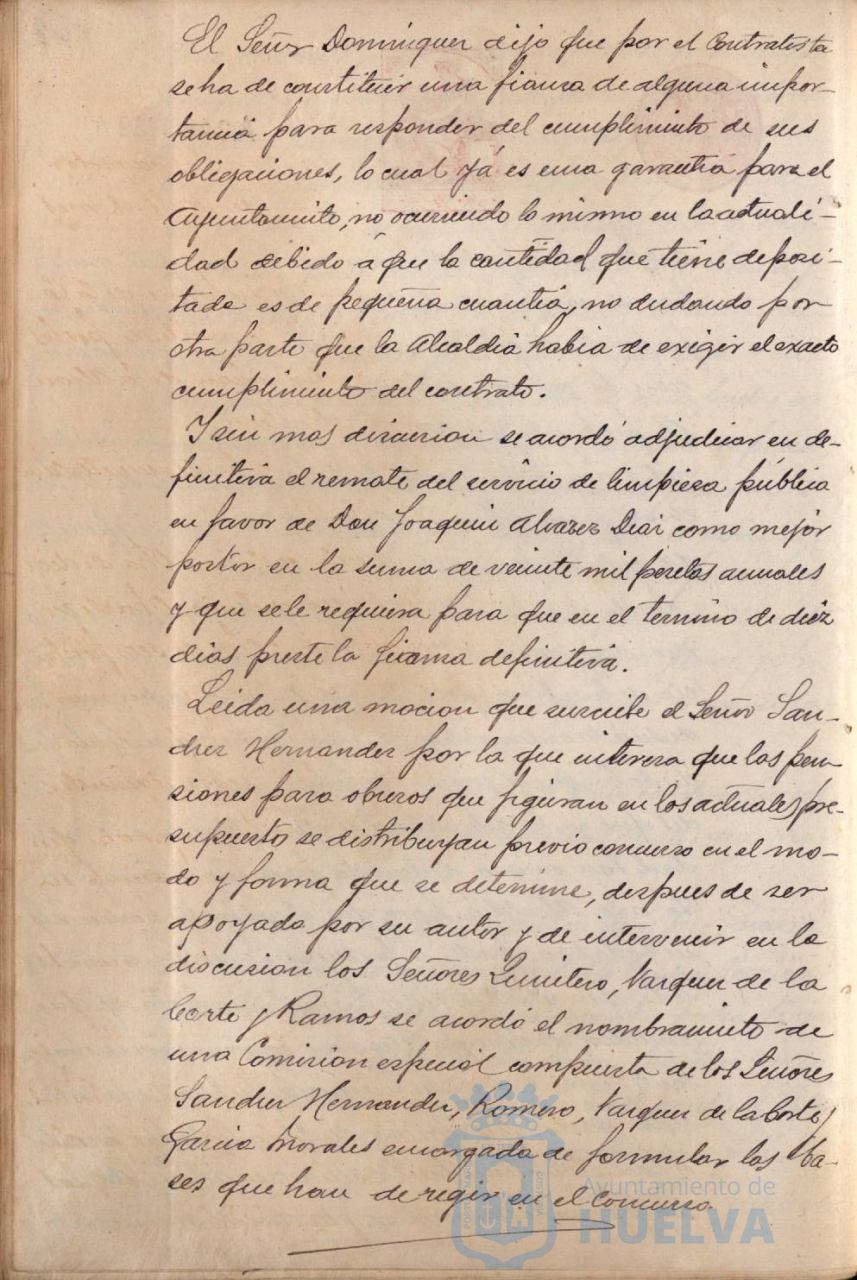 El Señor Dominguez dijo que por el Contratista
se ha de constituir una fianza de alguna impor-
tancia para responder del cumplimiento de sus
obligaciones, lo cual yá es una garantia para el
Ayuntamiento, no ocurriendo lo mismo en la actuali-
dad debido á que la cantidad que tiene deposi-
tada es de pequeña cuantia, no dudando por
otra parte que la Alcaldia habia de exigir el exacto
cumplimiento del contrato.
Y sin mas discusion se acordó adjudicar en de-
finitiva el remate del servicio de limpieza pública
en favor de Don Joaquin Alvarez Diaz como mejor
postor en la suma de veinte mil pesetas anuales
y que se le requiera para que en el termino de diez
dias preste la fianza definitiva.
Leida una mocion que suscribe el Señor San-
chez Hernandez por la que interesa que las pen
siones para obreros que figuran en los actuales pre-
supuestos se distribuyan previo concurso en el mo-
do y forma que se determine, despues de ser
apoyada por su autor y de intervenir en la
discusion los Señores Quintero, Vazquez de la
Corte y Ramos se acordó el nombramiento de
una Comision especial compuesta de los Señores
Sanchez Hernandez, Romero, Vazquez de la Corte y
Garcia Morales encargada de formular las ba-
ses que han de regir en el Concurso.
Ayuntamiento de
HUELVA